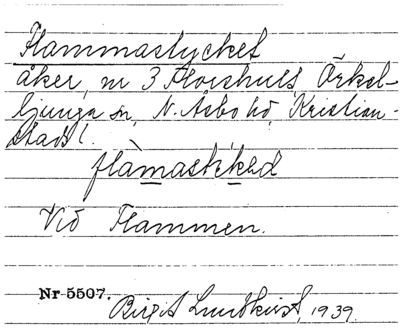 Flammastycket
åker, nr 3 Florshult, Örkel-
ljunga sn, N. Åsbo hd, Kristian-
stads l.
flàmastikəd
Vid Flammen.
Nr 5507. Birgit Lundkvist, 1939.